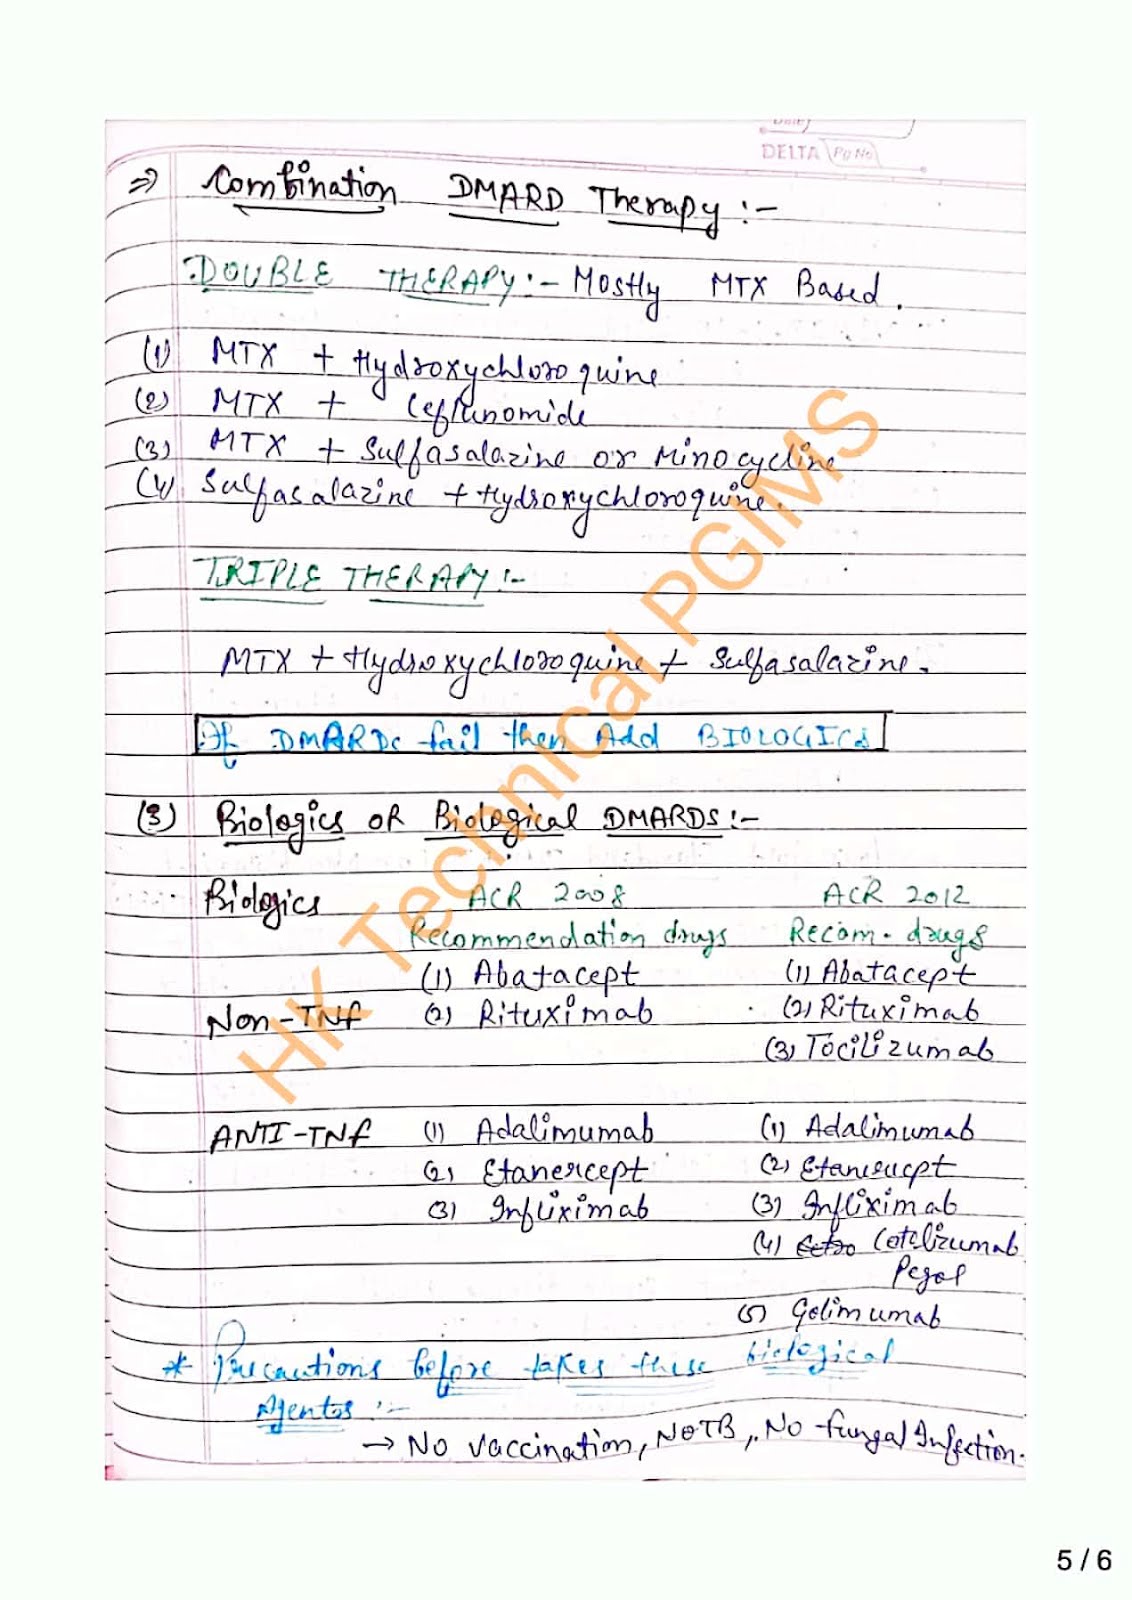 Date
DELTA Pg No
⇒ Combination DMARD Therapy :-
DOUBLE THERAPY :- Mostly MTX Based.
(1) MTX + Hydroxychloroquine
(2) MTX + Leflunomide
(3) MTX + Sulfasalazine or Minocycline
(4) Sulfasalazine + Hydroxychloroquine.
TRIPLE THERAPY :-
MTX + Hydroxychloroquine + Sulfasalazine.
If DMARDs fail then Add BIOLOGICS
(3) Biologics OR Biological DMARDS :-
Biologics ACR 2008 ACR 2012
Recommendation drugs Recom. drugs
(1) Abatacept (1) Abatacept
Non-TNF (2) Rituximab (2) Rituximab
(3) Tocilizumab
ANTI-TNF (1) Adalimumab (1) Adalimumab
(2) Etanercept (2) Etanercept
(3) Infliximab (3) Infliximab
(4) Cetolizumab
Pegol
(5) Golimumab
* Precautions before takes these biological
Agents :-
→ No vaccination, NO TB, No fungal Infection.
HK Technical PGIMS
5 / 6